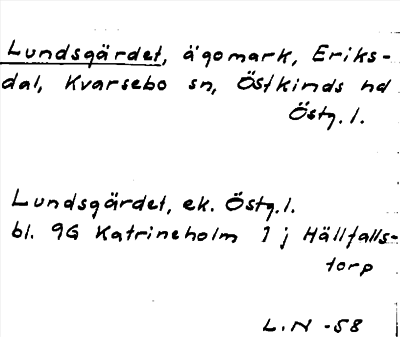 Lundsgärdet, ägomark, Eriks-
dal, Kvarsebo sn, Östkinds hd
Östg. l.
Lundsgärdet, ek. Östg. l.
bl. 9G Katrineholm 1 j Hällfalls-
torp
L.N -58